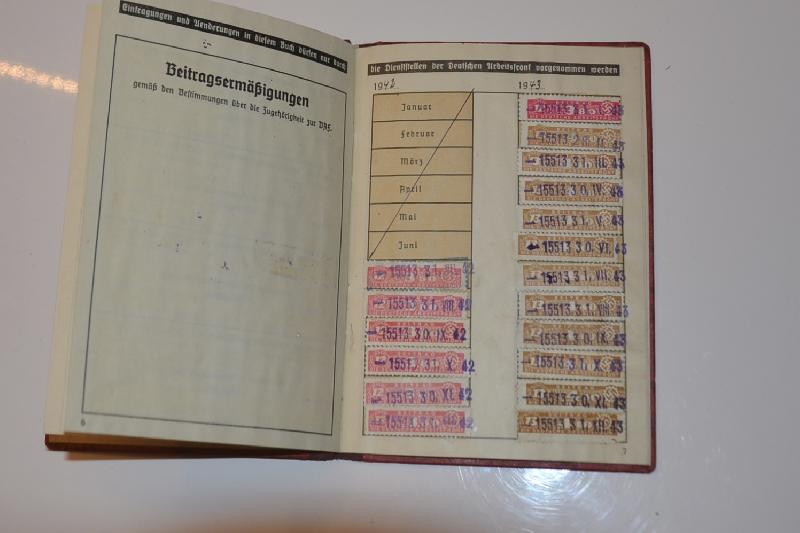 Eintragungen und Aenderungen in diesem Buch dürfen nur durch
Beitragsermäßigungen
gemäß den Bestimmungen über die Zugehörigkeit zur DAF.
6
die Dienststellen der Deutschen Arbeitsfront vorgenommen werden
1942
Januar
Februar
März
April
Mai
Juni
15513 31. VII. 42
15513 31. VIII. 42
15513 30. IX. 42
15513 31. X. 42
15513 30. XI. 42
15513 31. XII. 42
1943
43
15513 28. II. 43
15513 31. III. 43
15513 30. IV. 43
15513 31. V. 43
15513 30. VI. 43
15513 31. VII. 43
15513 31. VIII. 43
15513 30. IX. 43
15513 31. X. 43
15513 30. XI. 43
15513 31. XII. 43